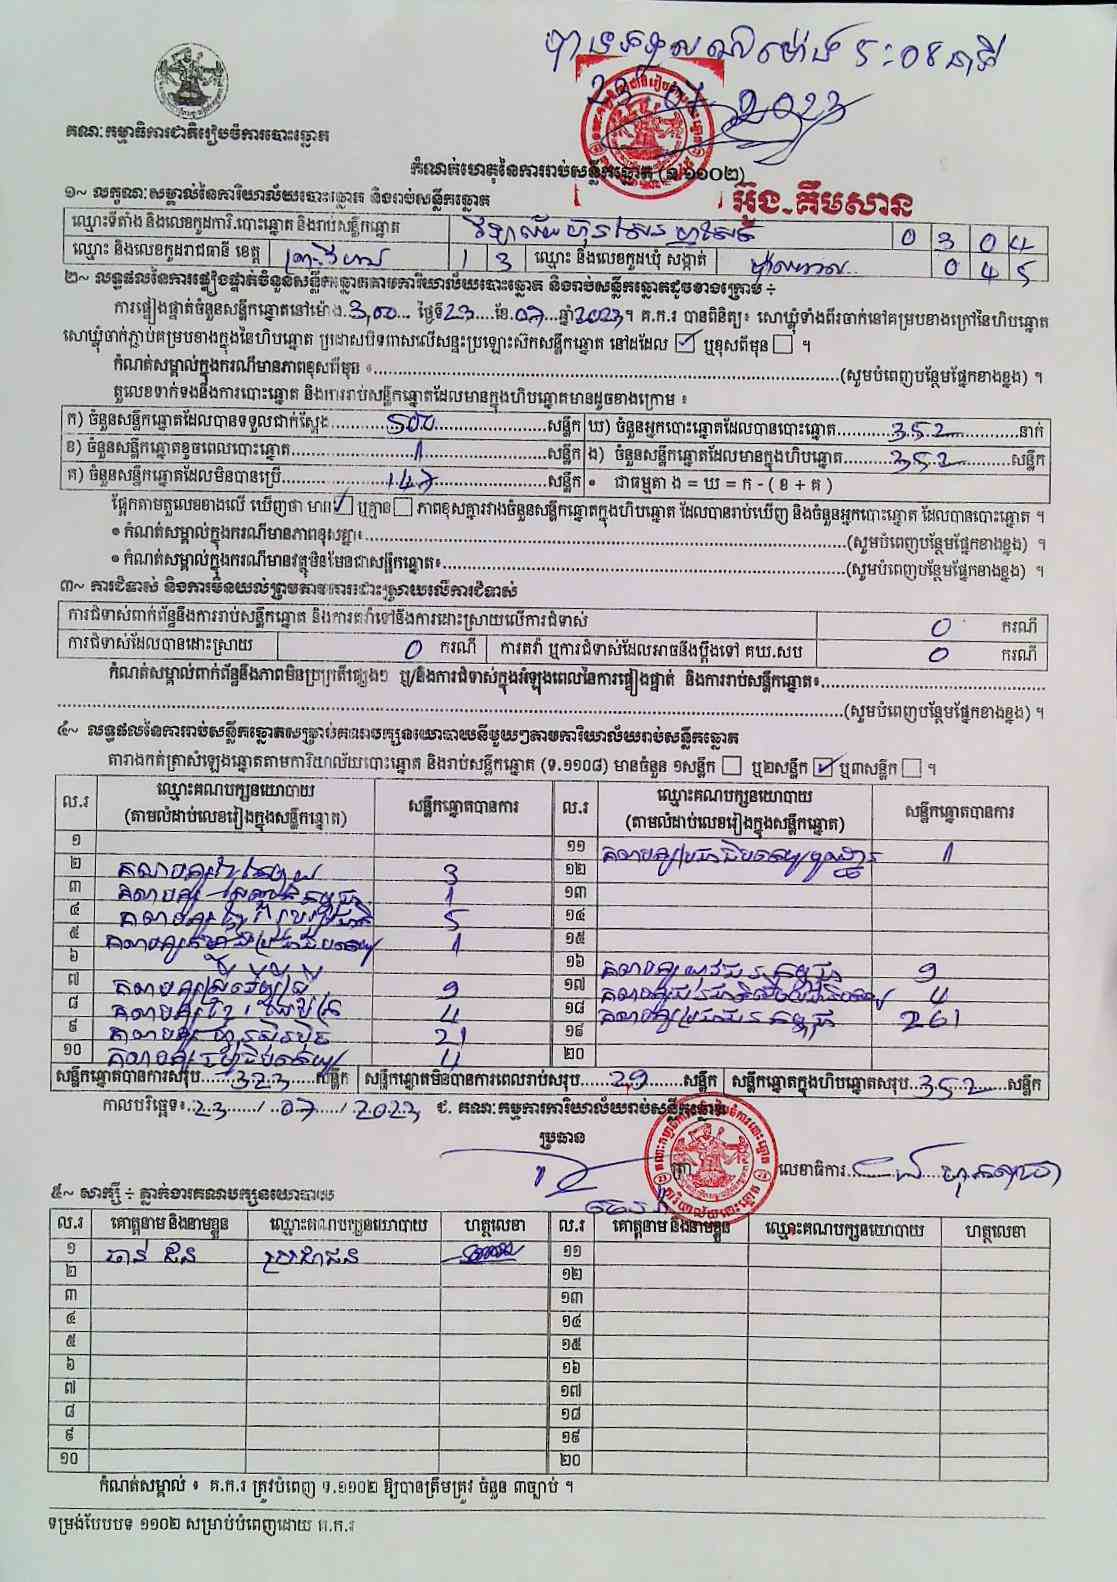 បានទទួលណាម៉ោង 5:08 នាទី
23 07 2023
គណៈកម្មាធិការជាតិរៀបចំការបោះឆ្នោត
កំណត់ហេតុនៃការរាប់សន្លឹកឆ្នោត (ទ.១១០២)
អ៊ុង.គឹមសាន
១~ លក្ខណៈសម្គាល់នៃការិយាល័យបោះឆ្នោត និងរាប់សន្លឹកឆ្នោត
ឈ្មោះទីតាំង និងលេខកូដការិ.បោះឆ្នោត និងរាប់សន្លឹកឆ្នោត វិទ្យាល័យ ហ៊ុន សែន 0 3 0 4
ឈ្មោះ និងលេខកូដរាជធានី ខេត្ត ព្រះវិហារ 1 3 ឈ្មោះ និងលេខកូដឃុំ សង្កាត់ 0 4 5
២~ លទ្ធផលនៃការផ្ទៀងផ្ទាត់ចំនួនសន្លឹកឆ្នោតតាមការិយាល័យបោះឆ្នោត និងរាប់សន្លឹកឆ្នោតដូចខាងក្រោម ÷
ការផ្ទៀងផ្ទាត់ចំនួនសន្លឹកឆ្នោតនៅម៉ោង 3,00 ថ្ងៃទី 23 ខែ 07 ឆ្នាំ 2023។ គ.ក.រ បានពិនិត្យ៖ សោឃ្លុំទាំងពីរចាក់នៅគម្របខាងក្រៅនៃហិបឆ្នោត
សោឃ្លុំចាក់ភ្ជាប់គម្របខាងក្នុងនៃហិបឆ្នោត ប្រដាសបិទពាសលើសន្ទះប្រឡោះស៊កសន្លឹកឆ្នោត នៅដដែល ☑ ឬខុសពីមុន ☐ ។
កំណត់សម្គាល់ក្នុងករណីមានភាពខុសពីមុន ៖ (សូមបំពេញបន្ថែមផ្នែកខាងខ្នង) ។
តួលេខទាក់ទងនឹងការបោះឆ្នោត និងការរាប់សន្លឹកឆ្នោតដែលមានក្នុងហិបឆ្នោតមានដូចខាងក្រោម ៖
ក) ចំនួនសន្លឹកឆ្នោតដែលបានទទួលជាក់ស្តែង 500 សន្លឹក ឃ) ចំនួនអ្នកបោះឆ្នោតដែលបានបោះឆ្នោត 352 នាក់
ខ) ចំនួនសន្លឹកឆ្នោតខូចពេលបោះឆ្នោត 1 សន្លឹក ង) ចំនួនសន្លឹកឆ្នោតដែលមានក្នុងហិបឆ្នោត 352 សន្លឹក
គ) ចំនួនសន្លឹកឆ្នោតដែលមិនបានប្រើ 147 សន្លឹក • ជាធម្មតា ង = ឃ = ក - ( ខ + គ )
ផ្អែកតាមតួលេខខាងលើ ឃើញថា មាន ☑ ឬគ្មាន ☐ ភាពខុសគ្នារវាងចំនួនសន្លឹកឆ្នោតក្នុងហិបឆ្នោត ដែលបានរាប់ឃើញ និងចំនួនអ្នកបោះឆ្នោត ដែលបានបោះឆ្នោត ។
• កំណត់សម្គាល់ក្នុងករណីមានភាពខុសគ្នា៖ (សូមបំពេញបន្ថែមផ្នែកខាងខ្នង) ។
• កំណត់សម្គាល់ក្នុងករណីមានវត្ថុមិនមែនជាសន្លឹកឆ្នោត៖ (សូមបំពេញបន្ថែមផ្នែកខាងខ្នង) ។
៣~ ការជំទាស់ និងការមិនយល់ព្រមតាមការដោះស្រាយលើការជំទាស់
ការជំទាស់ពាក់ព័ន្ធនឹងការរាប់សន្លឹកឆ្នោត និងការតវ៉ាទៅនឹងការដោះស្រាយលើការជំទាស់ 0 ករណី
ការជំទាស់ដែលបានដោះស្រាយ 0 ករណី ការតវ៉ា ឬការជំទាស់ដែលអាចនឹងប្តឹងទៅ គឃ.សប 0 ករណី
កំណត់សម្គាល់ពាក់ព័ន្ធនឹងភាពមិនប្រក្រតីផ្សេងៗ ឬ/និងការជំទាស់ក្នុងអំឡុងពេលនៃការផ្ទៀងផ្ទាត់ និងការរាប់សន្លឹកឆ្នោត៖
(សូមបំពេញបន្ថែមផ្នែកខាងខ្នង) ។
៤~ លទ្ធផលនៃការរាប់សន្លឹកឆ្នោតសម្រាប់គណបក្សនយោបាយនីមួយៗតាមការិយាល័យរាប់សន្លឹកឆ្នោត
តារាងកត់ត្រាសំឡេងឆ្នោតតាមការិយាល័យបោះឆ្នោត និងរាប់សន្លឹកឆ្នោត (ទ.១១០៨) មានចំនួន ១សន្លឹក ☐ ឬ២សន្លឹក ☑ ឬ៣សន្លឹក ☐ ។
ល.រ ឈ្មោះគណបក្សនយោបាយ (តាមលំដាប់លេខរៀងក្នុងសន្លឹកឆ្នោត) សន្លឹកឆ្នោតបានការ ល.រ ឈ្មោះគណបក្សនយោបាយ (តាមលំដាប់លេខរៀងក្នុងសន្លឹកឆ្នោត) សន្លឹកឆ្នោតបានការ
១ ១១ គណបក្ស 1
២ គណបក្ស 3 ១២
៣ គណបក្ស 1 ១៣
៤ គណបក្ស 5 ១៤
៥ គណបក្ស 1 ១៥
៦ ១៦ គណបក្សយុវជនកម្ពុជា 9
៧ គណបក្ស 9 ១៧ គណបក្ស 4
៨ គណបក្សខ្មែរ 4 ១៨ គណបក្សប្រជាជនកម្ពុជា 261
៩ គណបក្សហ៊្វុនស៊ិនប៉ិច 21 ១៩
១០ គណបក្ស 4 ២០
សន្លឹកឆ្នោតបានការសរុប 323 សន្លឹក សន្លឹកឆ្នោតមិនបានការពេលរាប់សរុប 29 សន្លឹក សន្លឹកឆ្នោតក្នុងហិបឆ្នោតសរុប 352 សន្លឹក
កាលបរិច្ឆេទ៖ 23 / 07 / 2023 ជ. គណៈកម្មការការិយាល័យរាប់សន្លឹកឆ្នោត
ប្រធាន
លេខាធិការ
៥~ សាក្សី ÷ ភ្នាក់ងារគណបក្សនយោបាយ
ល.រ គោត្តនាម និងនាមខ្លួន ឈ្មោះគណបក្សនយោបាយ ហត្ថលេខា ល.រ គោត្តនាម និងនាមខ្លួន ឈ្មោះគណបក្សនយោបាយ ហត្ថលេខា
១ ចាន់ ជន ប្រជាជន ១១
២ ១២
៣ ១៣
៤ ១៤
៥ ១៥
៦ ១៦
៧ ១៧
៨ ១៨
៩ ១៩
១០ ២០
កំណត់សម្គាល់ ៖ គ.ក.រ ត្រូវបំពេញ ទ.១១០២ ឱ្យបានត្រឹមត្រូវ ចំនួន ៣ច្បាប់ ។
ទម្រង់បែបបទ ១១០២ សម្រាប់បំពេញដោយ គ.ក.រ